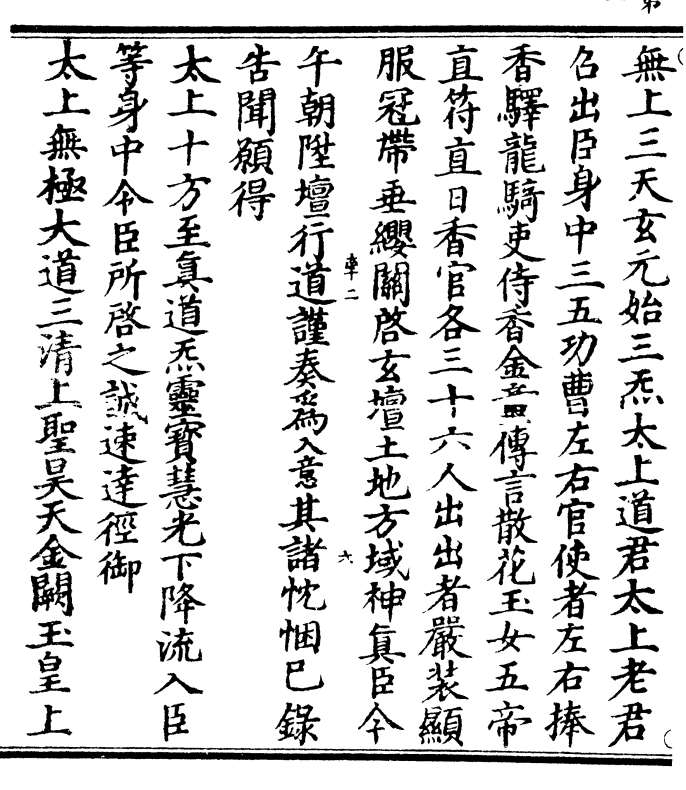 第
無上三天玄元始三炁太上道君太上老君
召出臣身中三五功曹左右官使者左右捧
香驛龍騎吏侍香金童傳言散花玉女五帝
直符直日香官各三十六人出出者嚴裝顯
服冠帶垂纓關啓玄壇土地方域神眞臣今
車二
六
午朝陞壇行道謹奏爲入意其諸忱悃已錄
告聞願得
太上十方至眞道炁靈寶慧光下降流入臣
等身中令臣所啓之誠速達徑御
太上無極大道三清上聖昊天金闕玉皇上